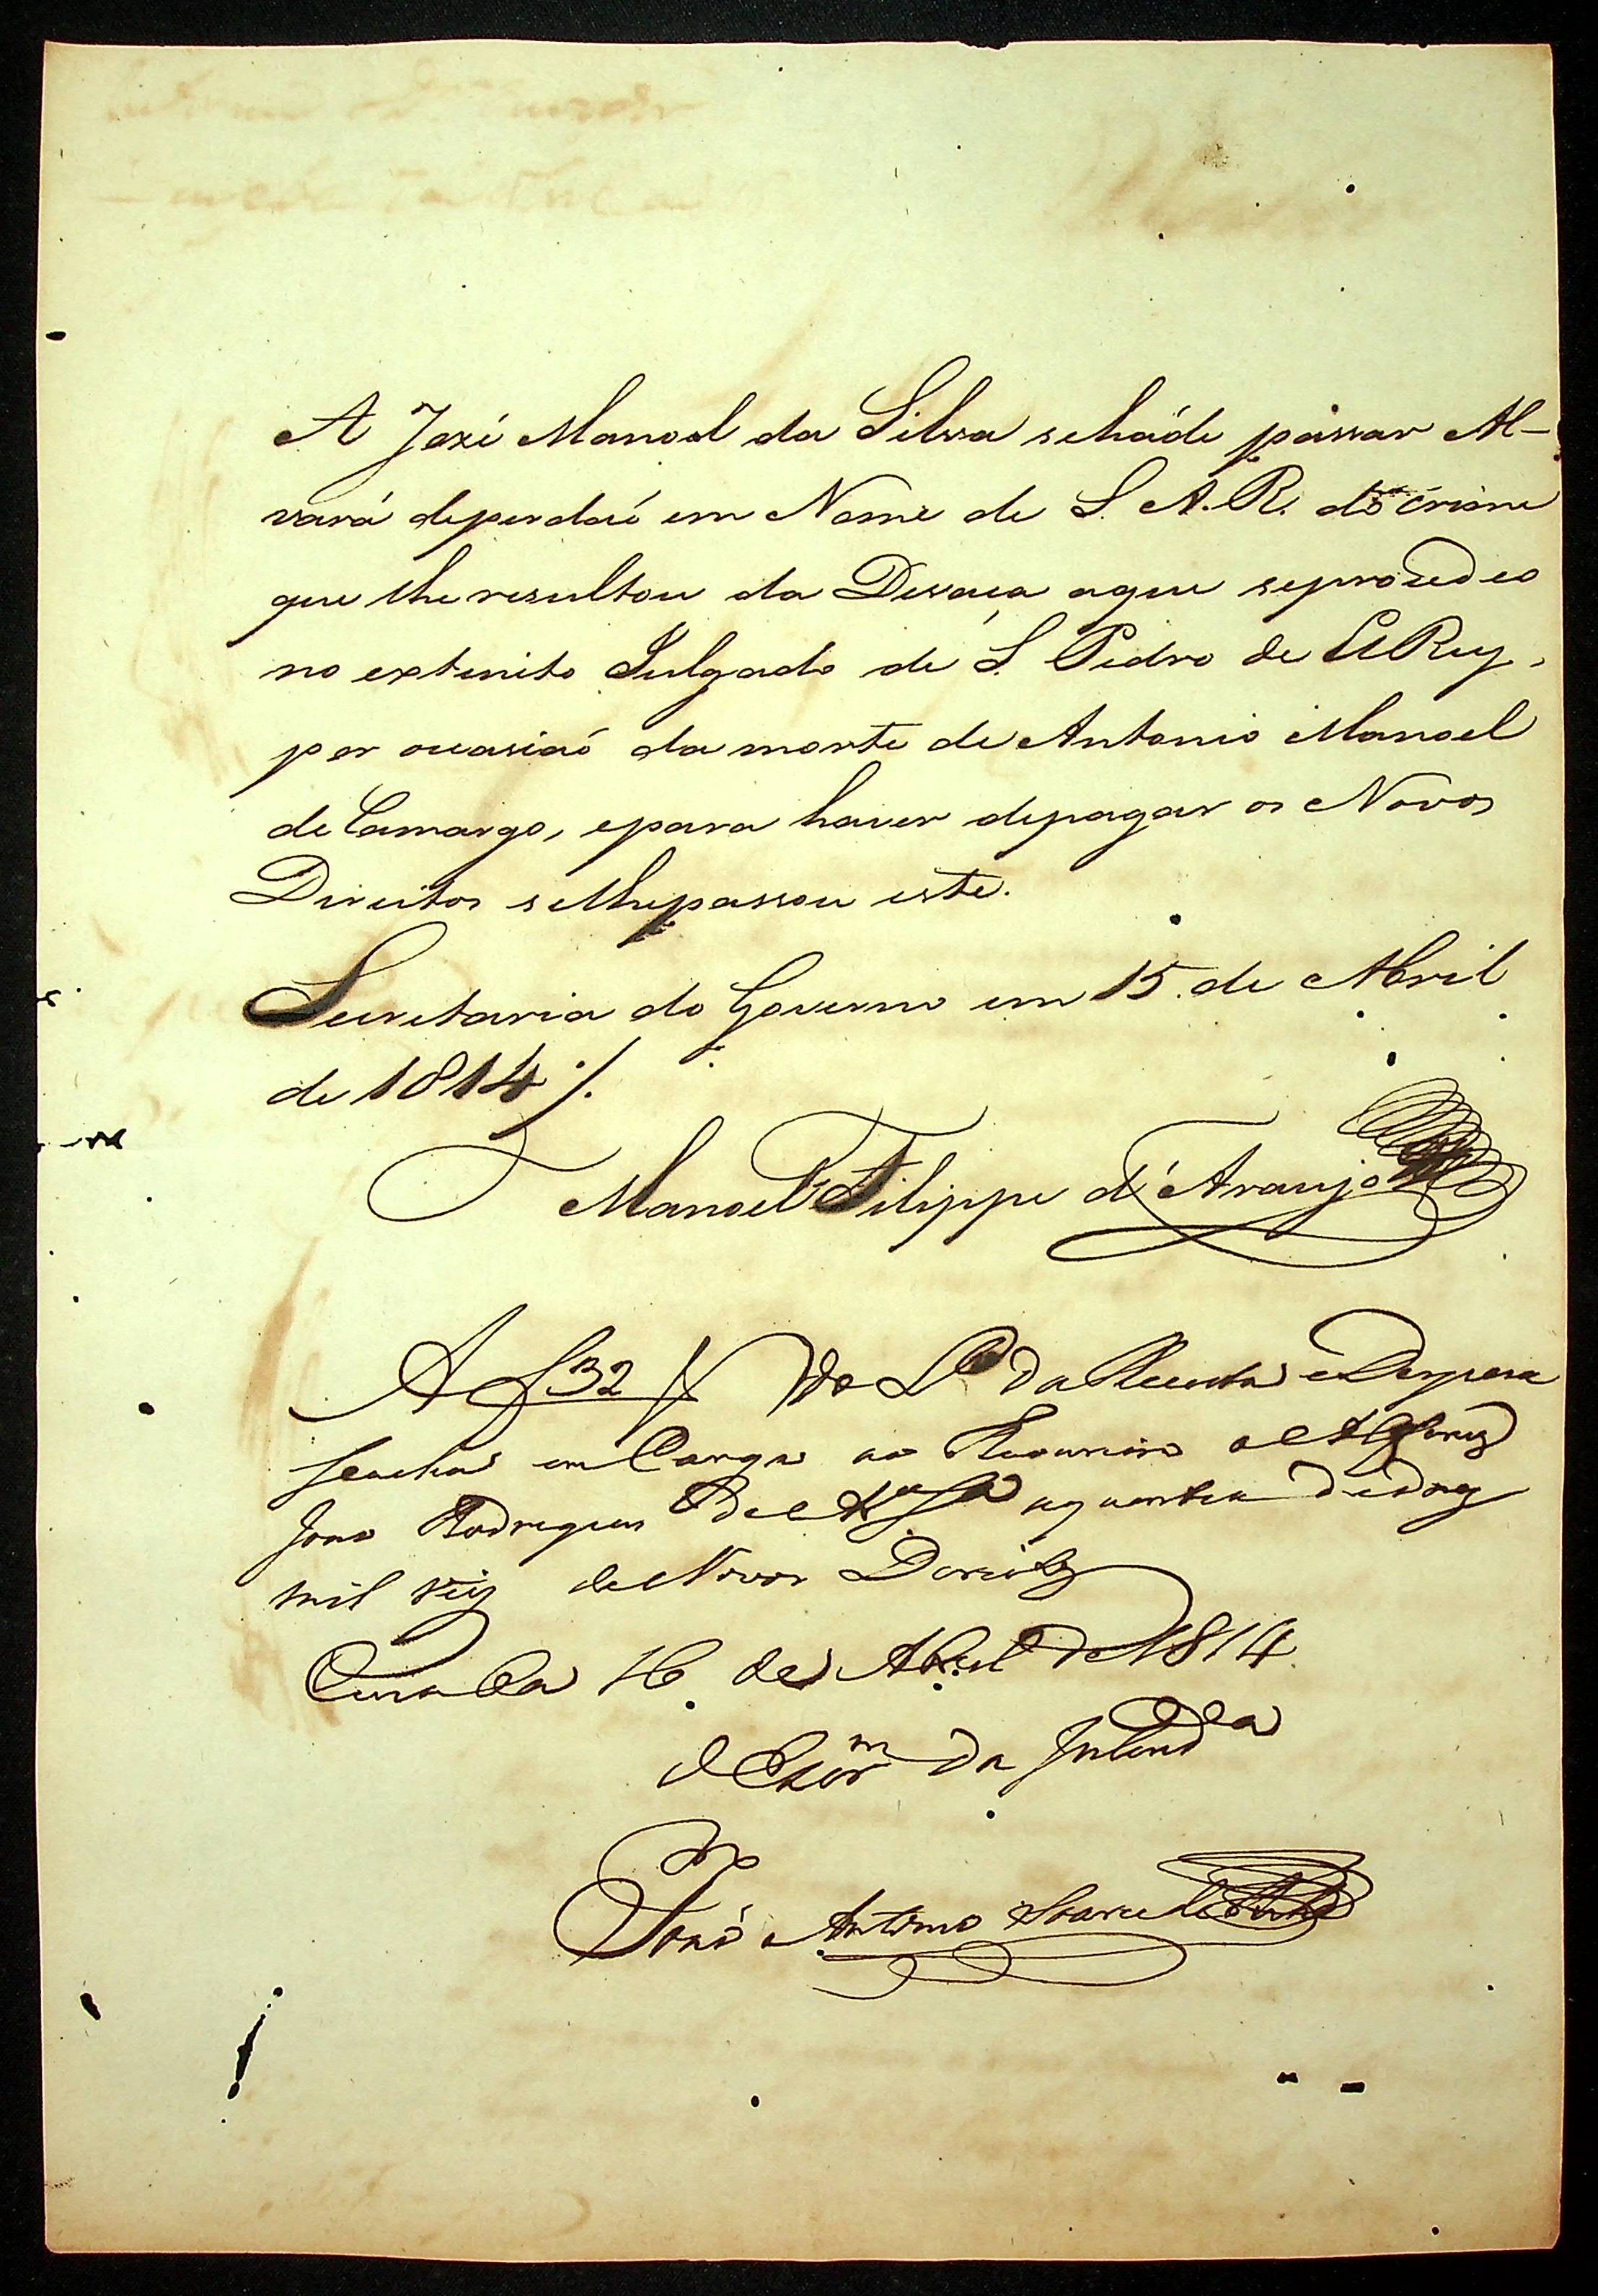 A Jozé Manoel da Silva seháde passar Al-
vará deperdaõ em Nome de S. A. R. do crime
que lhe resultou da Devaça aque seprocedeo
no extinito Julgado de S. Pedro de ElRey,
por occasiaõ da morte de Antonio Manoel
de Camargo, epara haver depagar os Novos
Direitos selhepassou este.
Secretaria do Governo em 15. de Abril
de 1814 ./.
Manoel Filippe d'Araujo
A f 32 V do L.º da Receita e Despesa
ficaõ em Carga ao Thezoureiro o Alferes
Joao Rodrigues aquantia de dez
mil reis de Novos Direitos
Cuiaba 16 de Abril de 1814
O Escr.m da Intend.ª
Joaõ Antonio